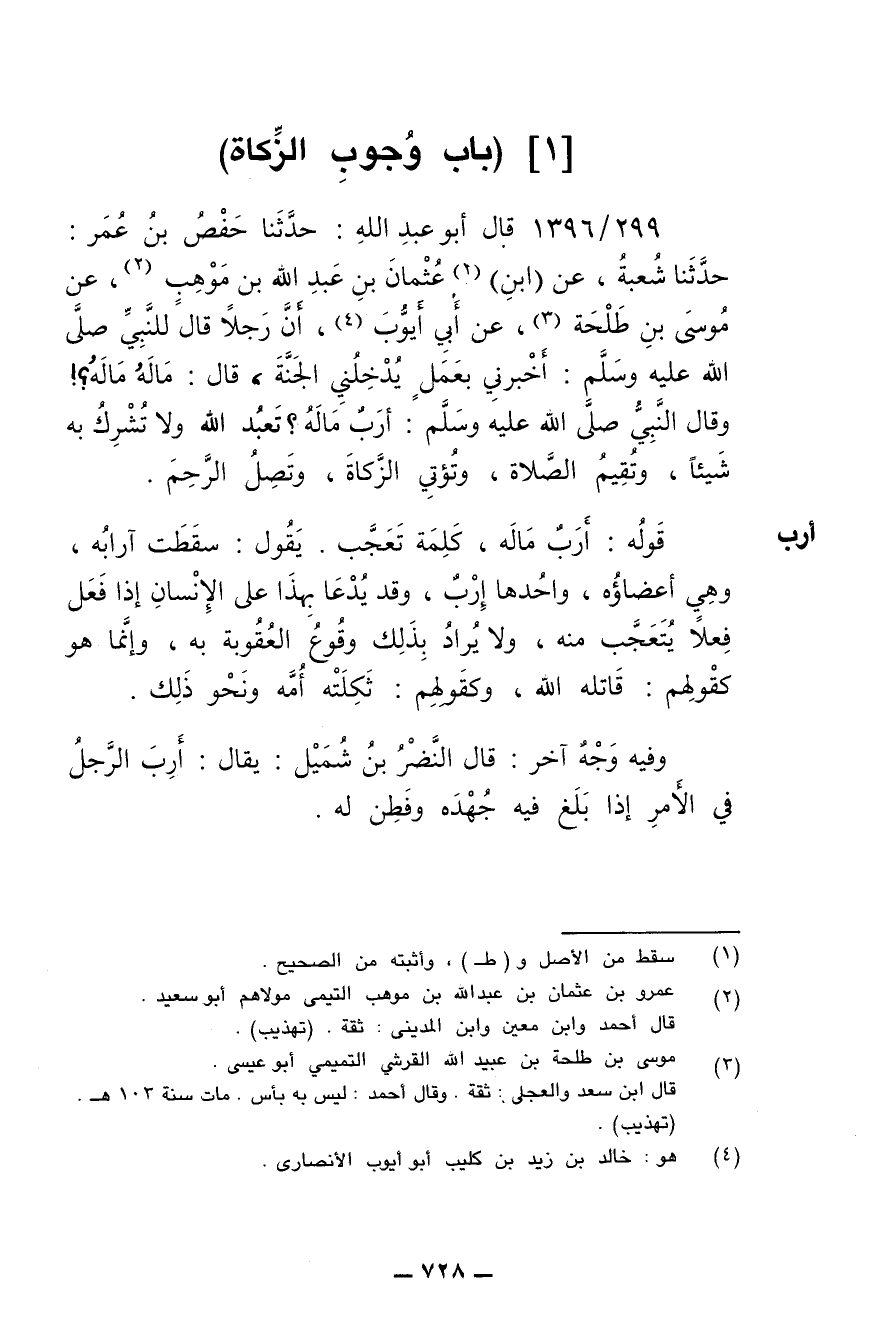 [١] (باب وُجوبِ الزَّكاة)
١٣٩٦/٢٩٩ قال أبو عبدِ اللهِ : حدَّثَنا حَفْصُ بنُ عُمَر :
حدَّثَنا شُعبةُ ، عن (ابنِ) (١) عُثْمانَ بنِ عَبدِ الله بن مَوْهِبٍ (٢) ، عن
مُوسَى بنِ طَلْحَة (٣) ، عن أبي أيوُّبَ (٤) ، أنَّ رَجلاً قال للنَّبِيِّ صلَّى
الله عليه وسَلَّم : أَخْبرني بعَمَلٍ يُدْخِلُني الجَنَّةَ ، قال : مَالَهُ مَالَهُ؟!
وقال النَّبِيُّ صلَّى الله عليه وسَلَّم : أرَبٌ مَالَهُ ؟ تَعبُد الله ولا تُشْرِكُ به
شَيئاً ، وتُقِيمُ الصَّلاة ، وتُؤتي الزَّكاةَ ، وتَصِلُ الرَّحِمَ .
أرب
قَولُه : أَرَبٌ مَالَه ، كَلِمَة تَعَجَّب . يَقُول : سقَطَت آرابُه ،
وهِي أعضاؤُه ، واحُدها إرْبٌ ، وقد يُدْعَا بِهذَا على الإنْسانِ إذا فَعَل
فِعلاً يُتَعَجَّب منه ، ولا يُرادُ بِذَلِك وقُوعُ العُقُوبة به ، وإنَّما هو
كقْولِهم : قَاتله الله ، وكقَولِهِم : ثَكِلَتْه أُمَّه ونَحْو ذَلِك .
وفيه وَجْهٌ آخر : قال النَّضْرُ بنُ شُمَيْل : يقال : أَرِبَ الرَّجلُ
في الأَمرِ إذا بَلَغ فيه جُهْدَه وفَطِن له .
(١) سقط من الأصل و ( طـ ) ، وأثبته من الصحيح .
(٢) عمرو بن عثمان بن عبدالله بن موهب التيمى مولاهم أبو سعيد .
قال أحمد وابن معين وابن المدينى : ثقة . (تهذيب) .
(٣) موسى بن طلحة بن عبيد الله القرشي التميمي أبو عيسى .
قال ابن سعد والعجلى : ثقة . وقال أحمد : ليس به بأس . مات سنة ١٠٣ هـ .
(تهذيب) .
(٤) هو : خالد بن زيد بن كليب أبو أيوب الأنصارى .
— ٧٢٨ —